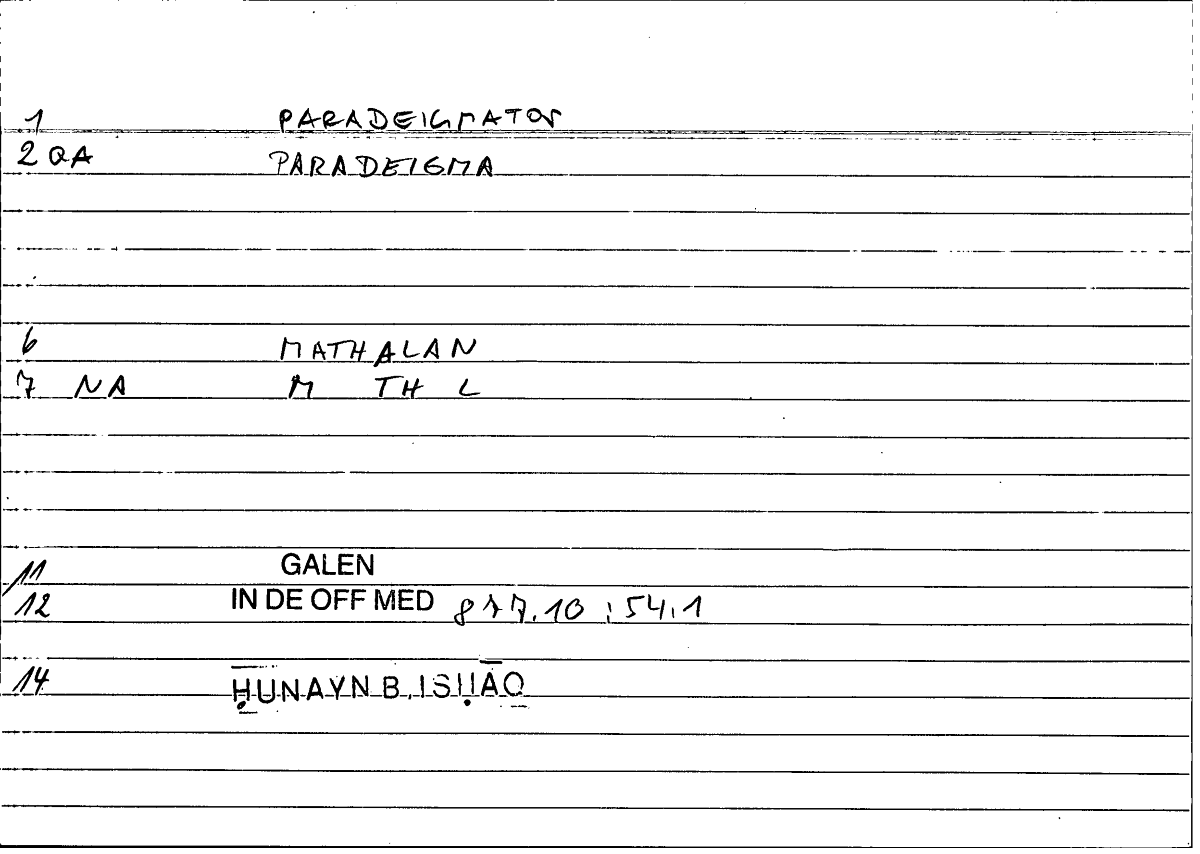 1 PARADEIGMATOS
2 QA PARADEIGMA
6 MATHALAN
7 NA M TH L
11 GALEN
12 IN DE OFF MED ; 54.1
14 ḤUNAYN B. ISḤĀQ